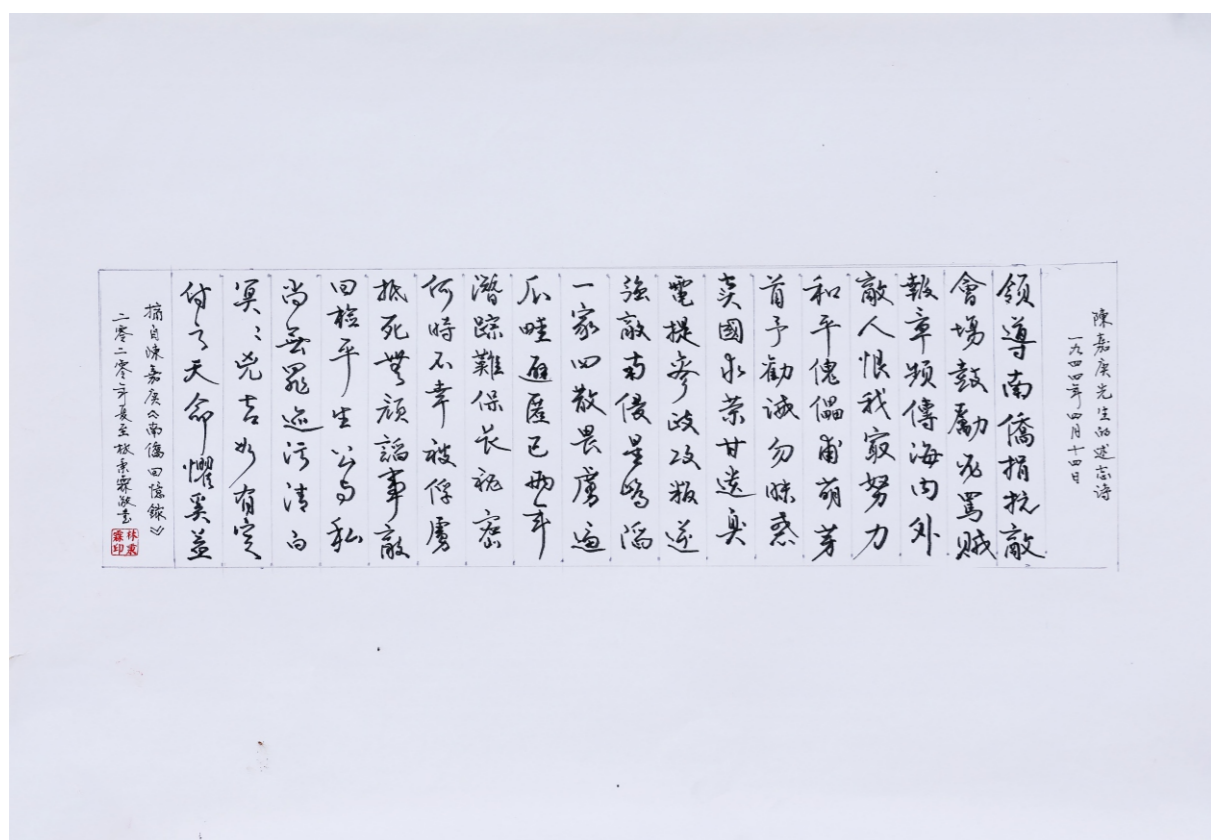 陳嘉庚先生的述志诗
一九四四年四月十四日
領導南僑捐抗敵
會場鼓勵必罵賊
報章頻傳海内外
敵人恨我最努力
和平傀儡甫萌芽
首予勸诫勿昧惑
賣國求荣甘遗臭
電提參政攻叛逆
強敵南侵星島陷
一家四散畏虜逼
爪哇避匿已兩年
潛踪難保长秘密
何時不幸被俘虜
抵死無颜諂事敵
回檢平生公与私
尚無罪迹污清白
冥冥兇吉如有定
付之天命懼奚益
摘自陳嘉庚《南僑回憶錄》
二零二零年夏至林秉霖敬书
林秉霖印